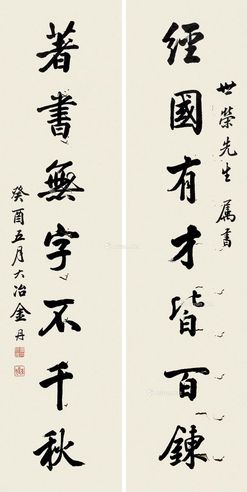 世榮先生屬書
經國有才皆百鍊
著書無字不千秋
癸酉五月大冶金丹